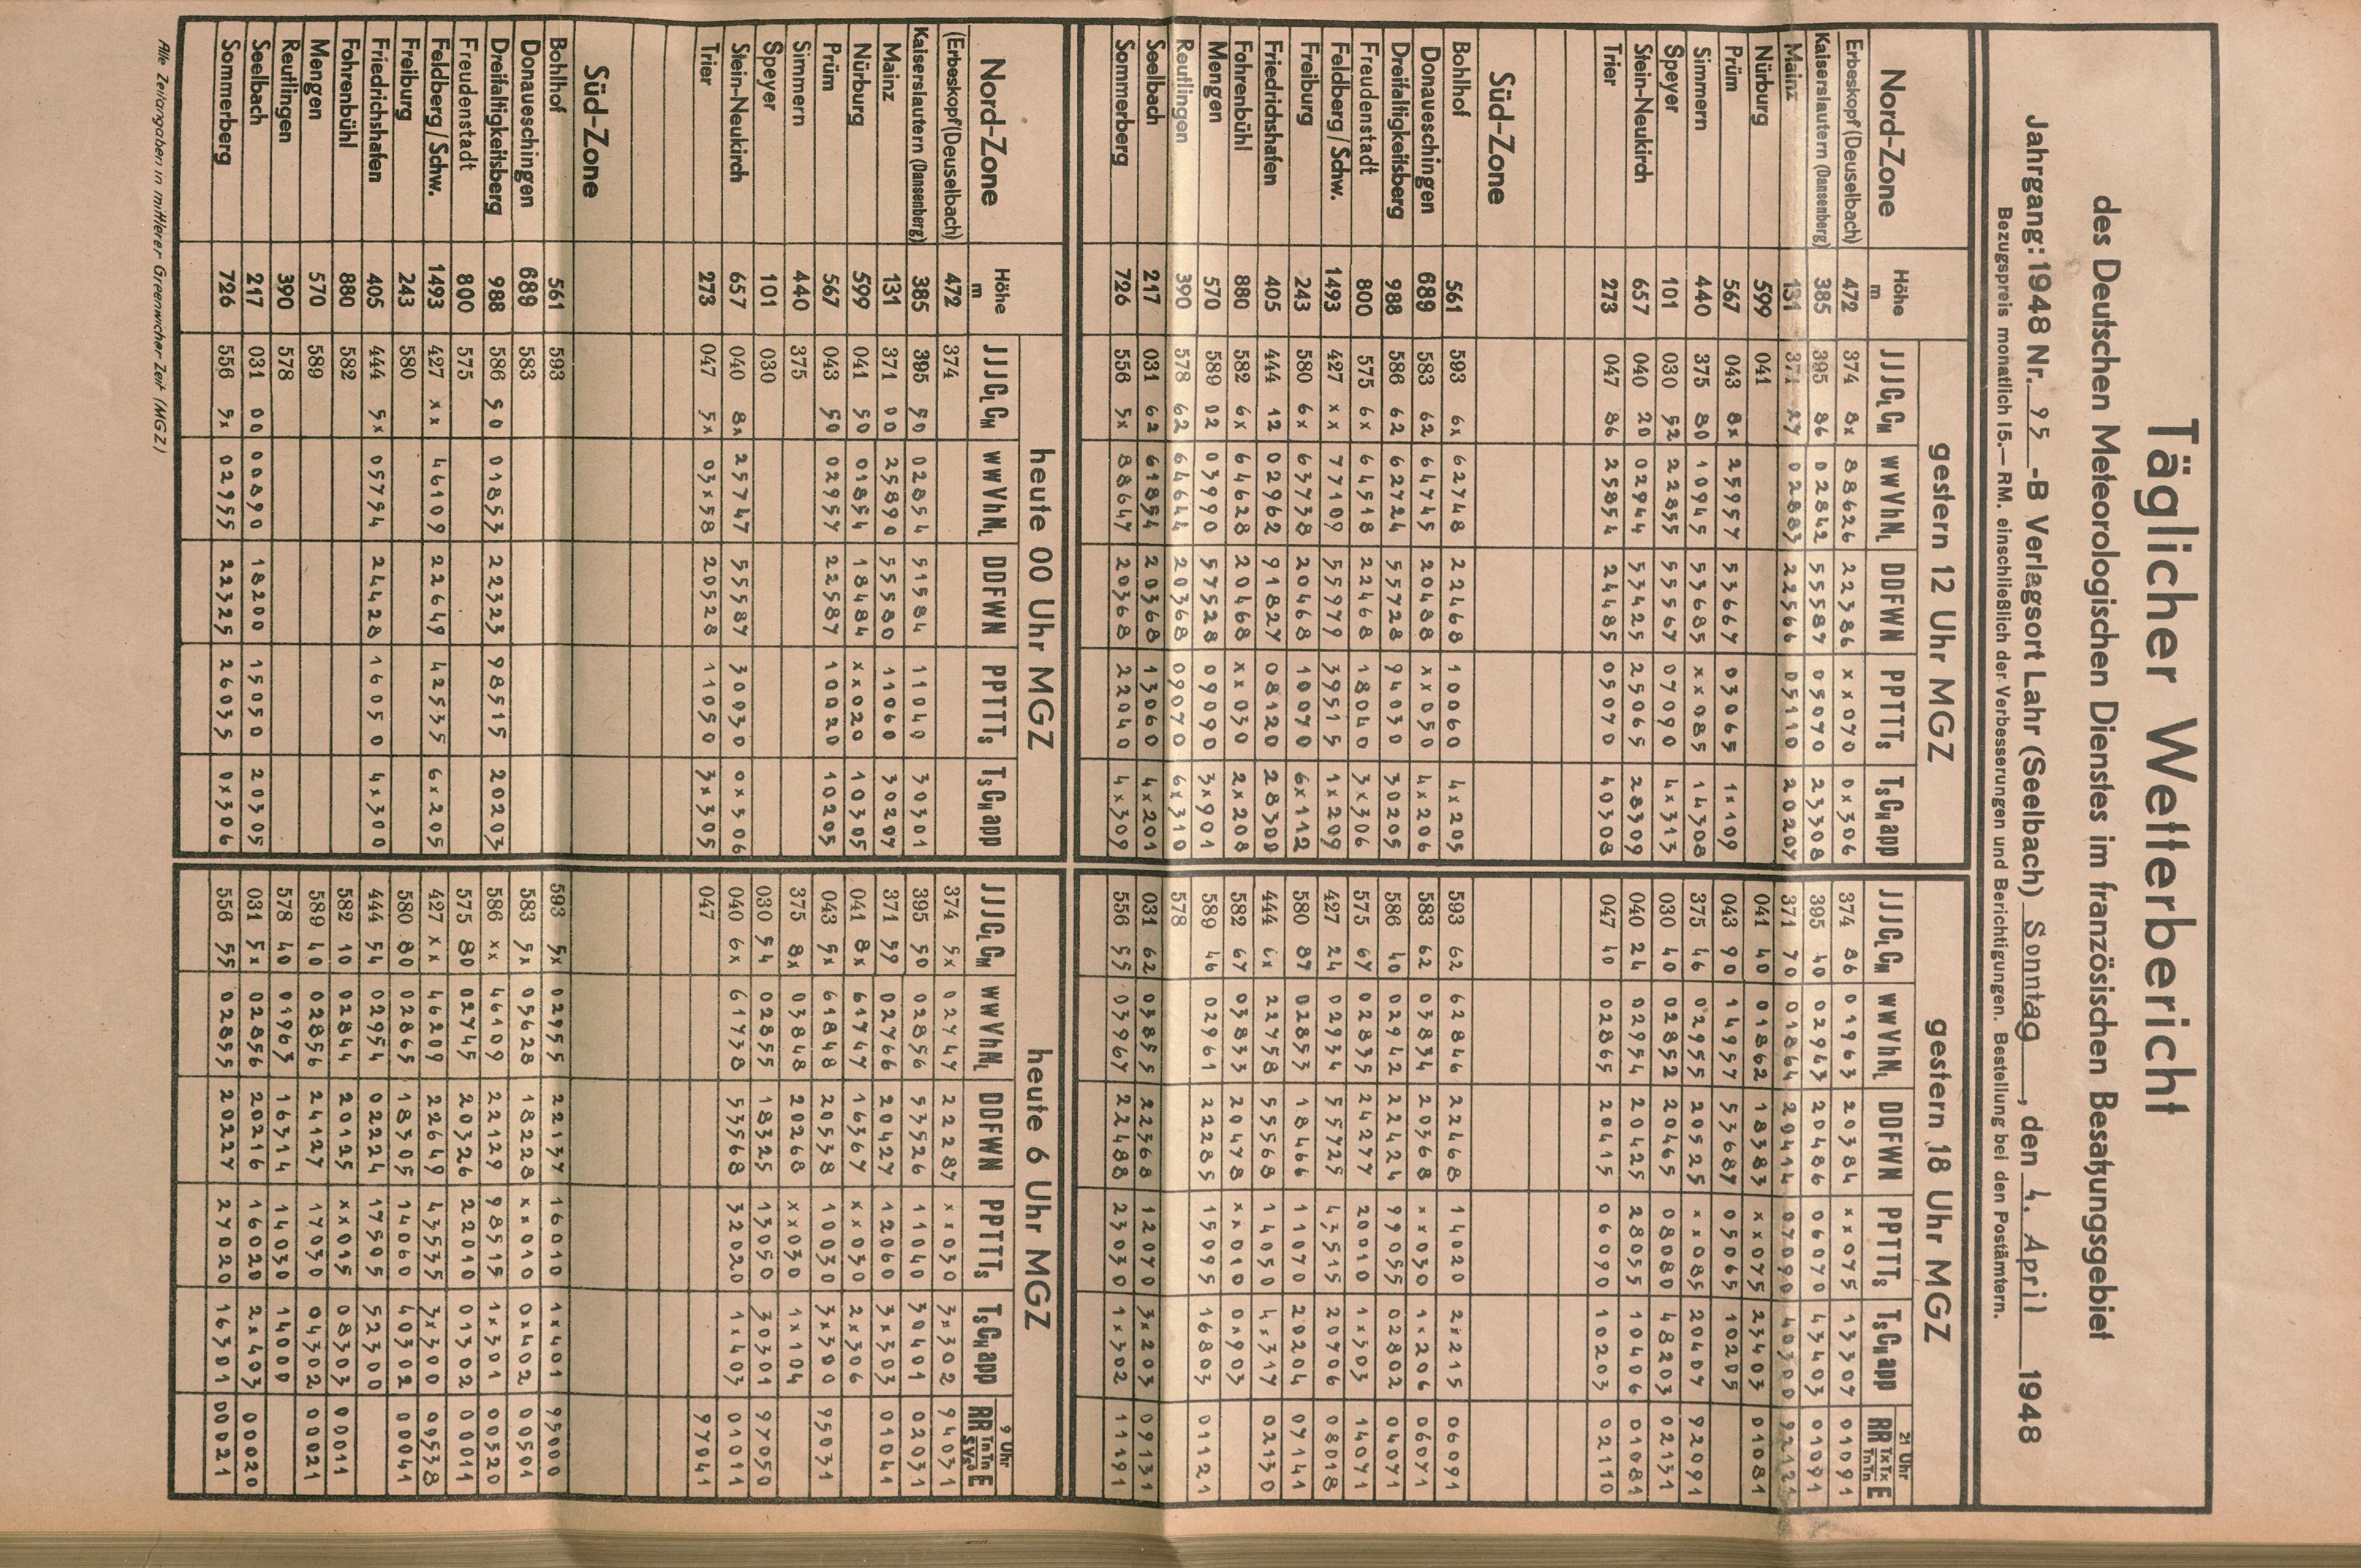 Täglicher Wetterbericht
des Deutschen Meteorologischen Dienstes im französischen Besatzungsgebiet
Jahrgang: 1948 Nr. 95 -B Verlagsort Lahr (Seelbach) Sonntag, den 4. April 1948
Bezugspreis monatlich 15.— RM. einschließlich der Verbesserungen und Berichtigungen. Bestellung bei den Postämtern.
gestern 12 Uhr MGZ gestern 18 Uhr MGZ
Nord-Zone Höhe m JJJCLCM wwVhNL DDFWN PPTTTs TsCHapp JJJCLCM wwVhNL DDFWN PPTTTs TsCHapp 21 Uhr RR TxTx TnTn E
Erbeskopf (Deuselbach) 472 374 8x 88626 22386 xx070 0x306 374 86 01963 20384 xx075 13307 01091
Kaiserslautern (Dansenberg) 385 395 86 02842 55587 05070 23308 395 40 02943 20486 06070 43403 01091
Mainz 131 371 27 02883 22566 05110 20207 371 70 01864 20414 07090 40300 92121
Nürburg 599 041 041 40 01862 18383 xx075 23403 01081
Prüm 567 043 8x 25957 53667 03065 1x109 043 90 14957 53687 05065 10205
Simmern 440 375 80 10945 53685 xx085 14308 375 46 02955 20525 xx085 20407 92091
Speyer 101 030 52 22855 55567 07090 4x313 030 40 02852 20465 08080 48203 02131
Stein-Neukirch 657 040 20 02944 53425 25065 28309 040 24 02954 20425 28055 10406 01081
Trier 273 047 86 25854 24485 05070 40308 047 40 02865 20415 06090 10203 02110
Süd-Zone
Bohlhof 561 593 6x 62748 22468 10060 4x205 593 62 62846 22468 14020 2x215 06091
Donaueschingen 689 583 62 64745 20488 xx050 4x206 583 62 03834 20368 xx030 1x206 06071
Dreifaltigkeitsberg 988 586 62 62724 55728 94030 30205 586 40 02942 22424 99055 02802 04071
Freudenstadt 800 575 6x 64518 22468 18040 3x306 575 67 02835 24277 20010 1x303 14071
Feldberg/Schw. 1493 427 xx 77109 55979 39515 1x209 427 24 02934 55725 43515 20706 08018
Freiburg 243 580 6x 63738 20468 10070 6x112 580 87 02853 18466 11070 20204 07141
Friedrichshafen 405 444 12 02962 91827 08120 28300 444 6x 22758 55568 14050 4x317 02130
Fohrenbühl 880 582 6x 64628 20468 xx030 2x208 582 67 03833 20478 xx010 0x903
Mengen 570 589 02 03990 57528 09090 3x901 589 46 02961 22285 15095 16803 01121
Reutlingen 390 578 62 64644 20368 09070 6x310 578
Seelbach 217 031 62 61854 20368 13060 4x201 031 62 03855 22368 12070 3x203 09131
Sommerberg 726 556 5x 88647 20368 22040 4x309 556 55 03967 22488 23030 1x302 11191
heute 00 Uhr MGZ heute 6 Uhr MGZ
Nord-Zone Höhe m JJJCLCM wwVhNL DDFWN PPTTTs TsCHapp JJJCLCM wwVhNL DDFWN PPTTTs TsCHapp 9 Uhr RR TnTn E
(Erbeskopf (Deuselbach) 472 374 374 5x 02747 22287 xx030 3x302 94031
Kaiserslautern (Dansenberg) 385 395 50 02854 51584 11040 30301 395 50 02856 53526 11040 30401 02031
Mainz 131 371 00 25890 55580 11060 30207 371 59 02766 20427 12060 3x303 01041
Nürburg 599 041 50 01854 18484 xx020 10305 041 8x 61747 16367 xx030 2x306
Prüm 567 043 50 02957 22587 10020 10205 043 5x 61848 20538 10030 3x300 95031
Simmern 440 375 375 8x 03848 20268 xx030 1x104
Speyer 101 030 030 54 02855 18325 13050 30301 97050
Stein-Neukirch 657 040 8x 25747 55587 30030 0x306 040 6x 61738 53568 32020 1x403 01011
Trier 273 047 5x 03x58 20528 11050 3x305 047 97041
Süd-Zone
Bohlhof 561 593 593 5x 02955 22137 16010 1x401 95000
Donaueschingen 689 583 583 5x 05628 18228 xx010 0x402 00501
Dreifaltigkeitsberg 988 586 50 01853 22323 98515 20203 586 xx 46109 22129 98515 1x301 00520
Freudenstadt 800 575 575 80 02745 20326 22010 01302 00011
Feldberg/Schw. 1493 427 xx 46109 22649 42535 6x205 427 xx 46209 22649 43535 3x300 09538
Freiburg 243 580 580 80 02865 18305 14060 40302 00041
Friedrichshafen 405 444 5x 05754 24428 16050 4x300 444 54 02954 02224 17505 52300
Fohrenbühl 880 582 582 10 02844 20125 xx015 08303 00011
Mengen 570 589 589 40 02856 24127 17030 04302 00021
Reutlingen 390 578 578 40 01963 16314 14030 14000
Seelbach 217 031 00 00890 18200 15050 20305 031 5x 02856 20216 16020 2x403 00020
Sommerberg 726 556 5x 02955 22325 26035 0x306 556 55 02855 20227 27020 16301 00021
Alle Zeitangaben in mittlerer Greenwicher Zeit (MGZ)